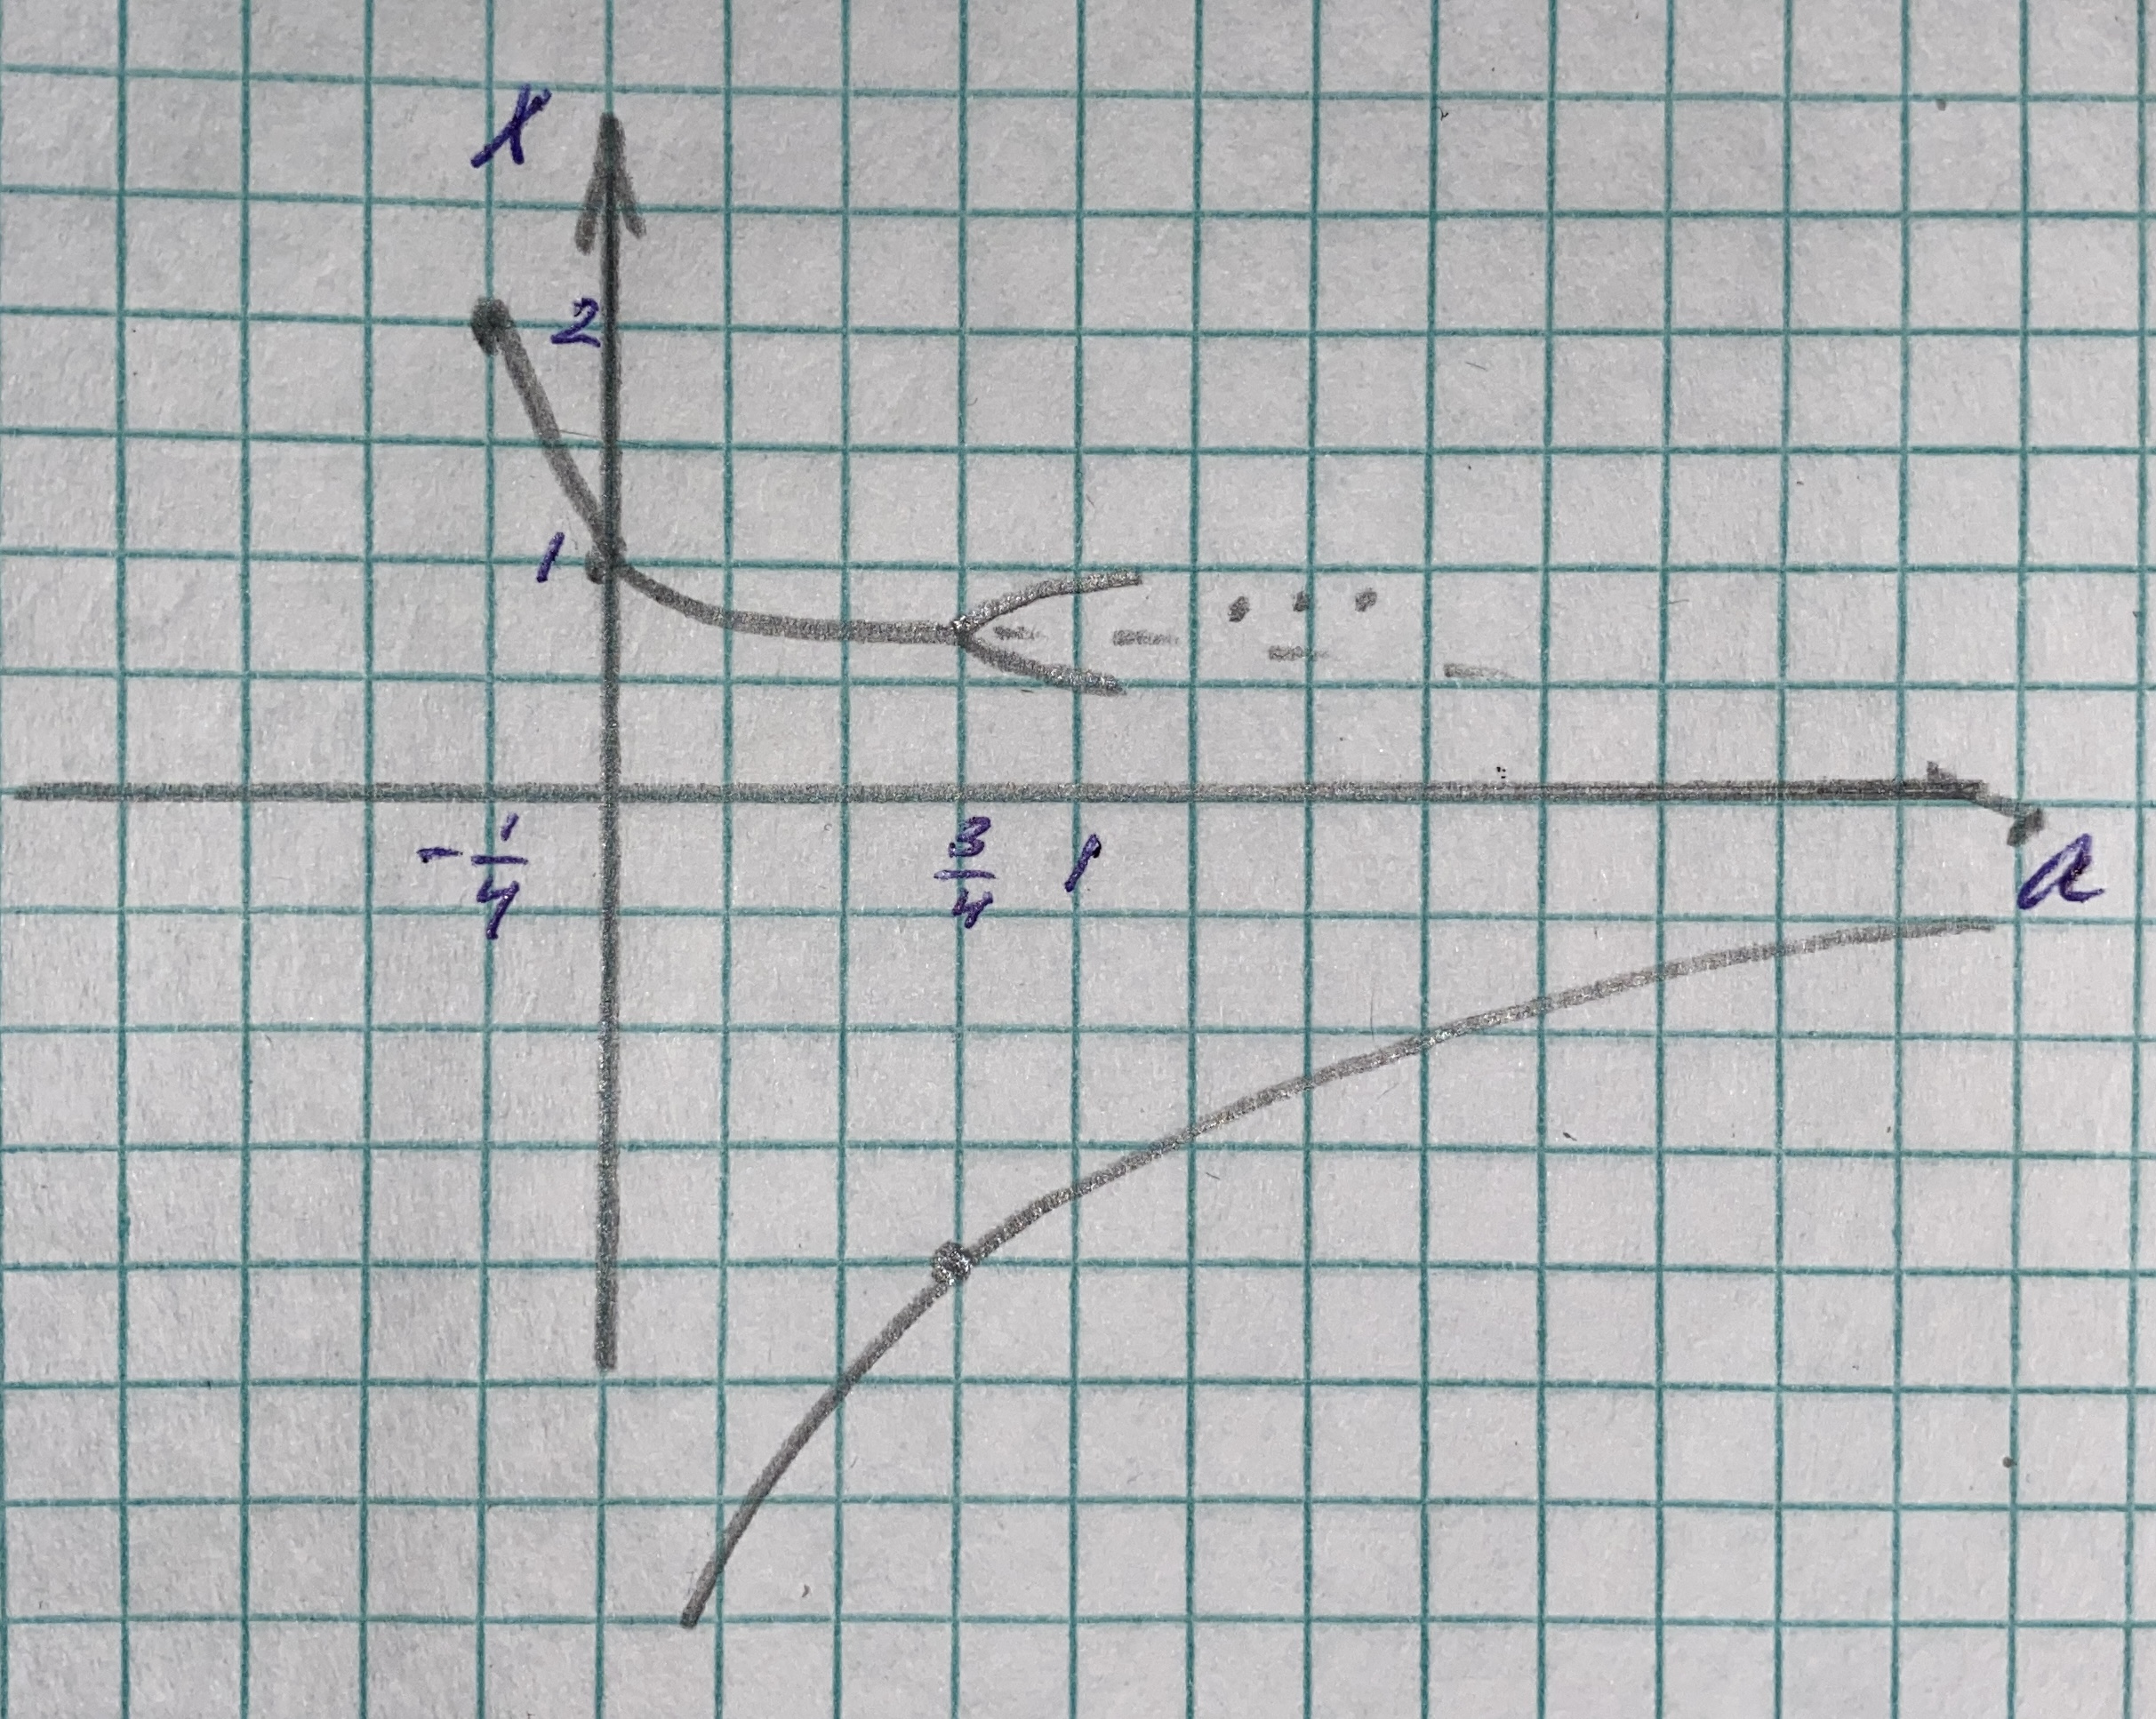 x
2
1
-1/4
3/4 1
a